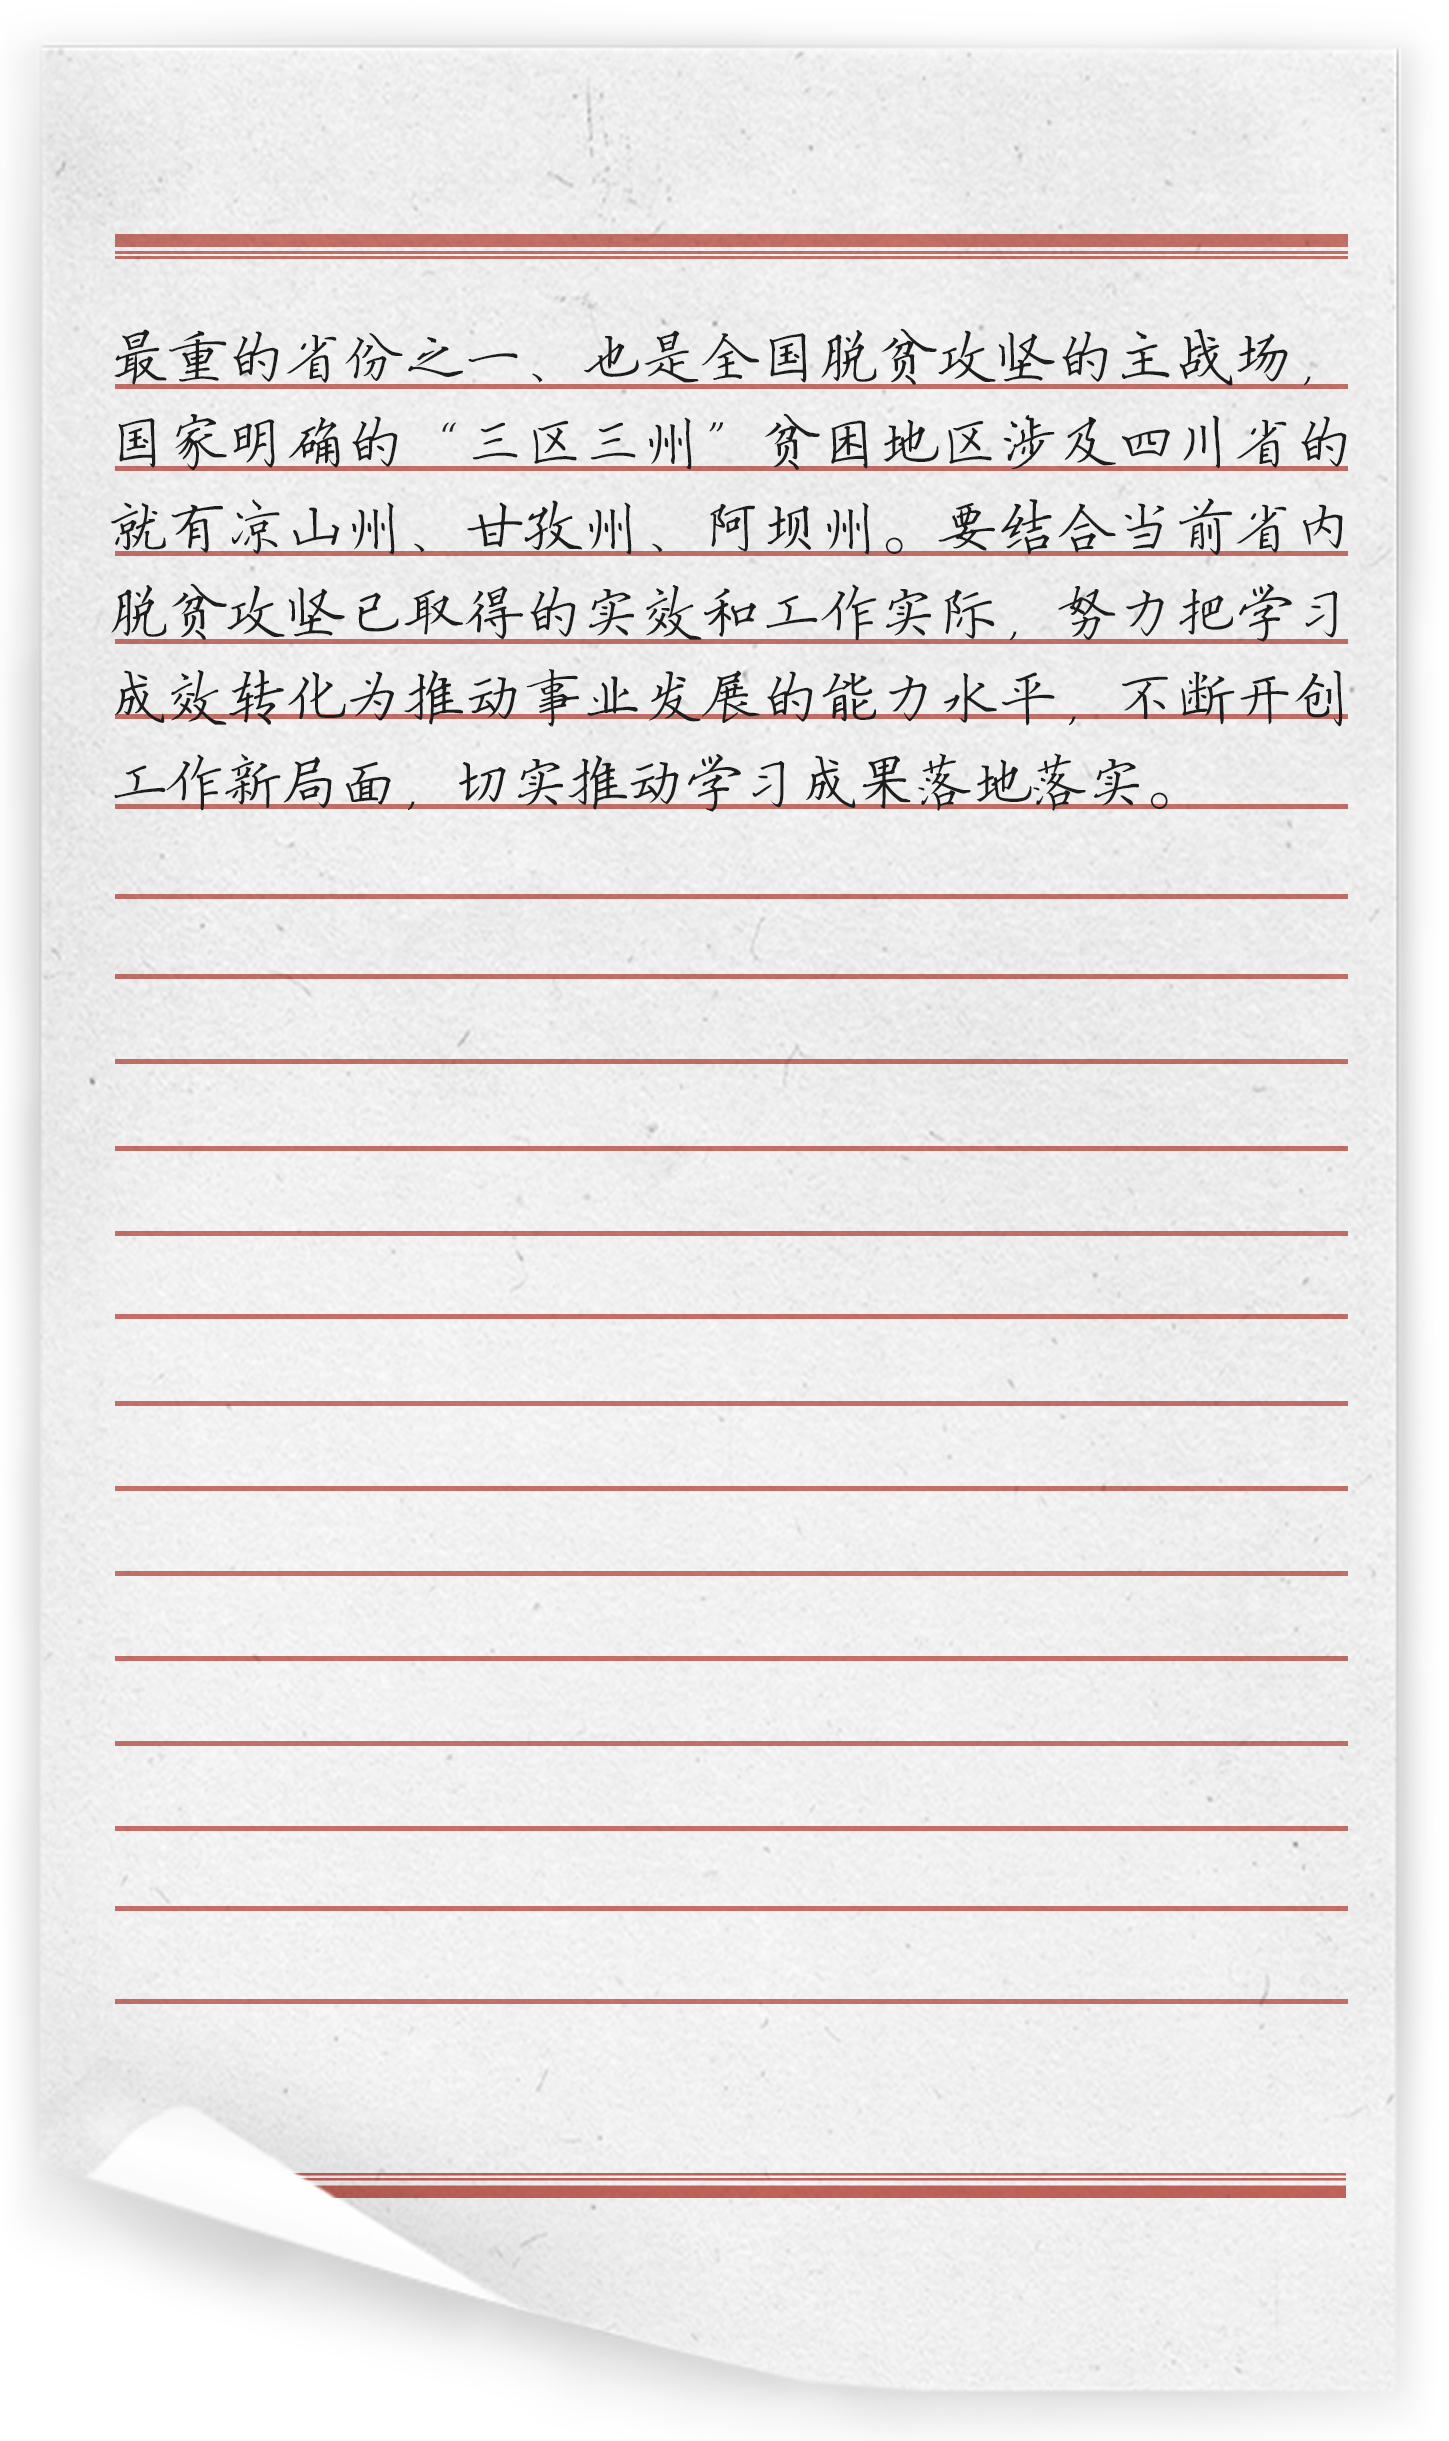 最重的省份之一、也是全国脱贫攻坚的主战场，
国家明确的“三区三州”贫困地区涉及四川省的
就有凉山州、甘孜州、阿坝州。要结合当前省内
脱贫攻坚已取得的实效和工作实际，努力把学习
成效转化为推动事业发展的能力水平，不断开创
工作新局面，切实推动学习成果落地落实。